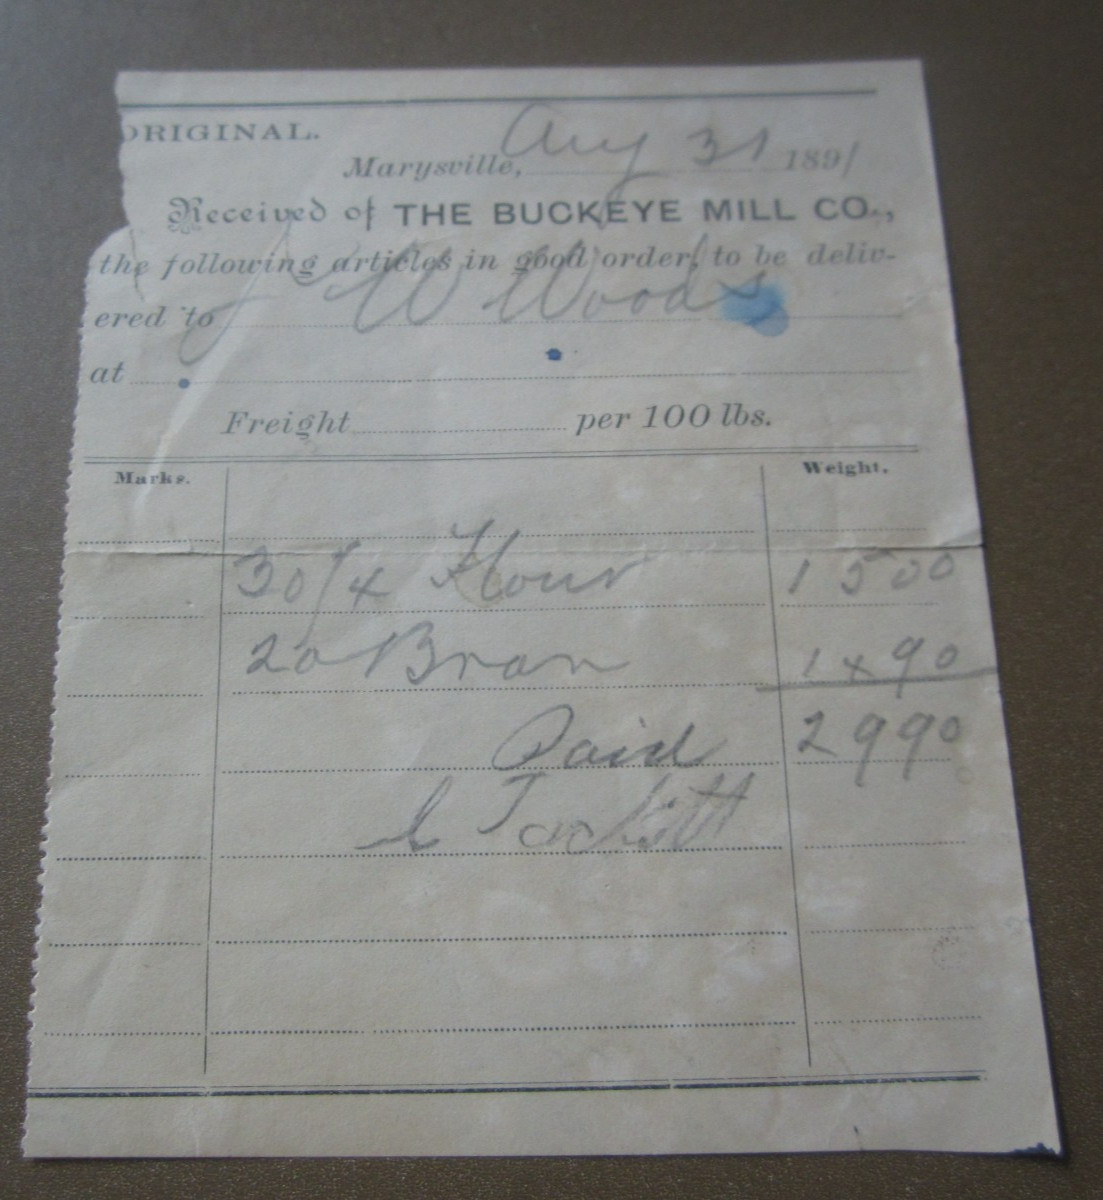 ORIGINAL.
Marysville, Aug 31 1891
Received of THE BUCKEYE MILL CO.,
the following articles in good order, to be deliv-
ered to J W Woods
at
Freight per 100 lbs.
Marks. Weight.
30/4 Flour 1500
20 Bran 1490
Paid 2990
Tackett